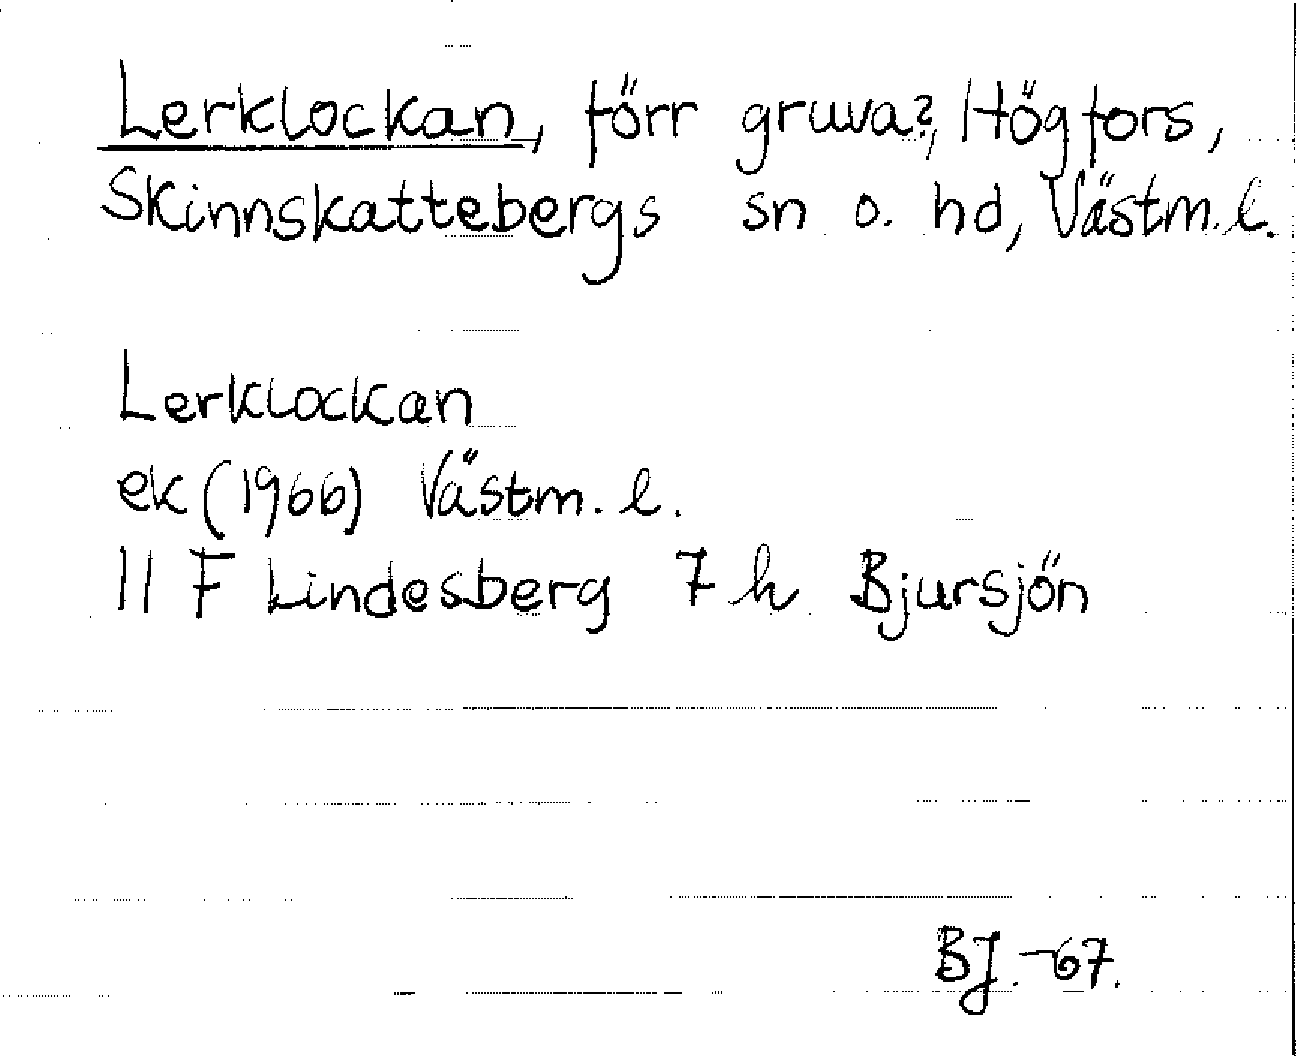 Lerklockan, förr gruva?, Högfors,
Skinnskattebergs sn o. hd, Västm. l.
Lerklockan
ek (1966) Västm. l.
11 F Lindesberg 7 h Bjursjön
BJ. -67.